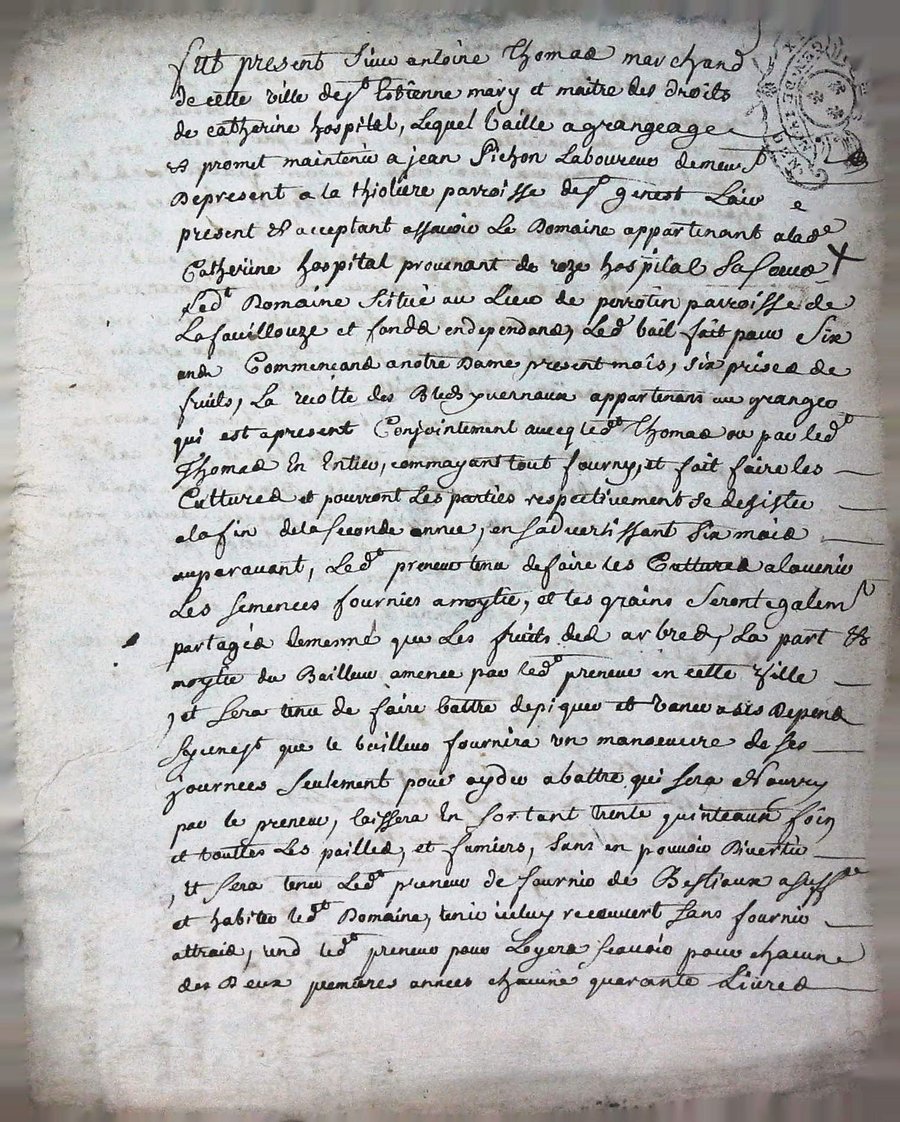 Fut present Sieur antoine Thomas marchand
de cette ville de st Estienne mary et maitre des droits
de catherine hospital, Lequel baille a grangeage
et promet maintenir a jean Pichon Laboureur demeurt
Depresent a la thioliere parroisse de st genest Lair
present et acceptant assavoir Le Domaine appartenant alade
Catherine hospital provenant de roze hospital Sa soeur X
Ledt Domaine Situé au Lieu de perrotin parroisse de
Lafouillouze et fonds endependans, Ledt bail fait pour Six
ans Commencans a notre Dame present mois, six prises de
fruits, La recolte des Bleds yvernaux appartenans au granger
qui est apresent Conjointement avecq ledt Thomas ou par ledt
Thomas En Entier, comme ayans tout fourny, et fait faire les
Cultures et pourront Les parties respectivement se desister
ala fin de la seconde annee, en sadvertissant Six mois
auparavant, Ledt preneur tenu de faire les Cultures alavenir
Les semences fournies a moytie, et les grains Seront egalemt
partagés demesme que Les fruits des arbres, La part et
moytie du Bailleur amenee par ledt preneur en cette Ville
, et Sera tenu de faire battre depiquer et vaner a ses Depens
Sy ce nest que le bailleur fournira un manoeuvre de ses
journees Seulement pour ayder a battre qui sera Nourry
par le preneur, laissera En Sortant trente quinteaux foin
et touttes Les pailles, et fumiers, Sans en pouvoir Divertir
, et Sera tenu Ledt preneur de fournir de Bestiaux
et habiter ledt Domaine, tenir iceluy recouvert Sans fournir
attraid, ledt preneur pour Loyers Scavoir pour chacune
des Deux premieres annees chacune quarante Livres